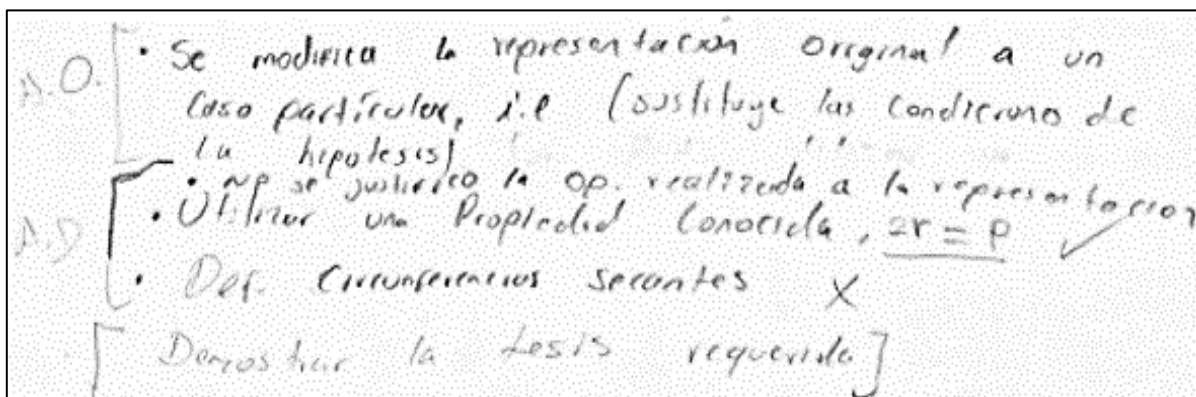 A.O. • Se modifica la representación original a un
Caso particular, i.e (sustituye las condiciones de
la hipotesis)
• No se justifico la op. realizada a la representacion
A.D • Utilizar una Propiedad Conocida, 2r = p ✓
• Def. Circunferencias secantes X
[Demostrar la tesis requerida]